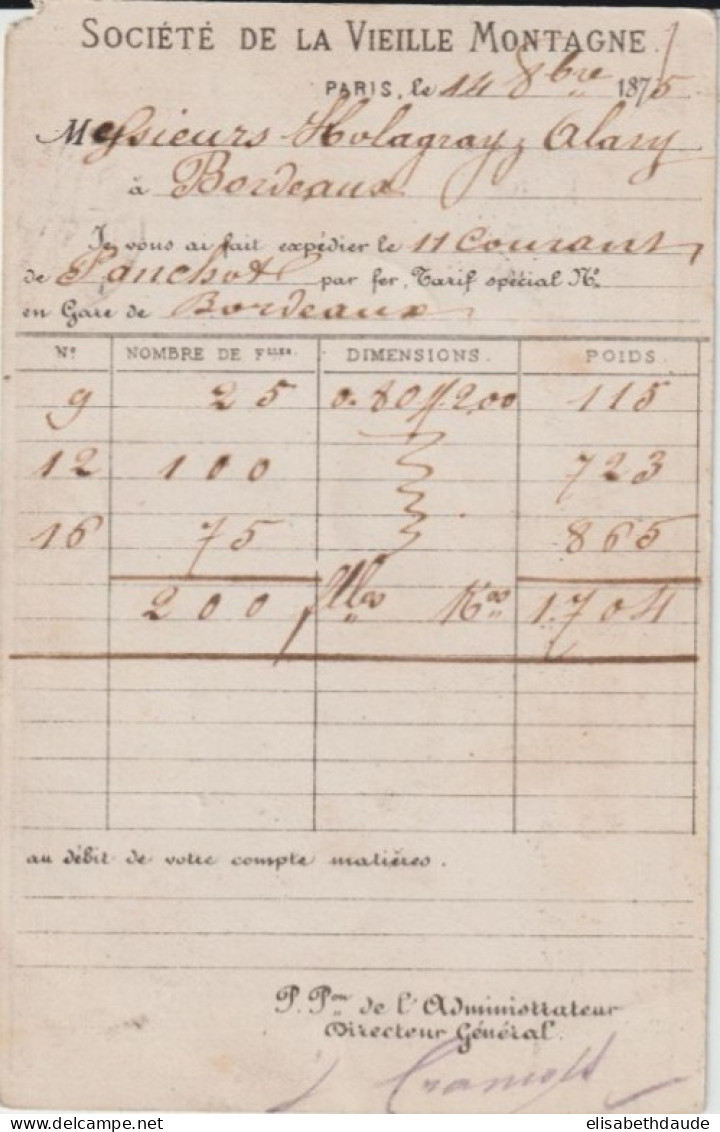 SOCIÉTÉ DE LA VIEILLE MONTAGNE.
PARIS, le 14 8bre 1875
Messieurs Holagray, Alary
à Bordeaux
Je vous ai fait expédier le 11 courant
de Panchot par fer, Tarif spécial No.
en Gare de Bordeaux
No. NOMBRE DE Flles. DIMENSIONS. POIDS.
9 25 0.80 // 2.00 115
12 100 723
16 75 865
200 flles Kos 1.704
au débit de votre compte matières.
P. Pon de l'Administrateur
Directeur Général.
elisabethdaude